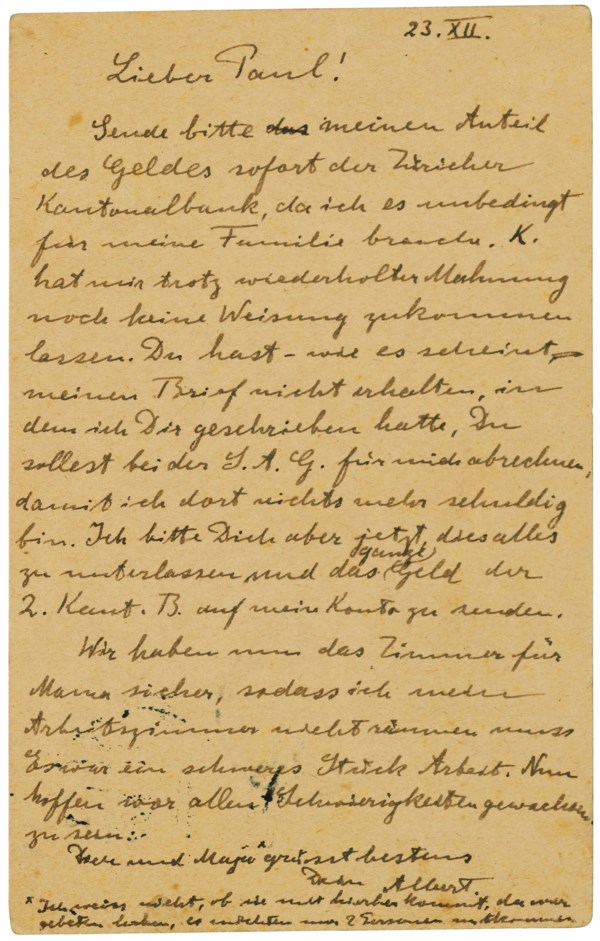 23. XII.
Lieber Paul!
Sende bitte das meinen Anteil
des Geldes sofort der Züricher
Kantonalbank, da ich es unbedingt
für meine Familie brauche. K.
hat mir trotz wiederholter Mahnung
noch keine Weisung zukommen
lassen. Du hast – wie es scheint –
meinen Brief nicht erhalten, in
dem ich Dir geschrieben hatte, Du
sollest bei der S. A. G. für mich abrechnen,
damit ich dort nichts mehr schuldig
bin. Ich bitte Dich aber jetzt, dies alles
zu unterlassen und das ganze Geld der
Z. Kant. B. auf mein Konto zu senden.
Wir haben nun das Zimmer für
Mama sicher, sodass ich mein
Arbeitszimmer nicht räumen muss
Es war ein schweres Stück Arbeit. Nun
hoffen wir allen Schwierigkeiten gewachsen
zu sein.
Dich und Maja* grüsst bestens
Dein Albert.
* Ich weiss nicht, ob sie mit hierher kommt, da wir
gebeten haben, es möchten nur 2 Personen mitkommen